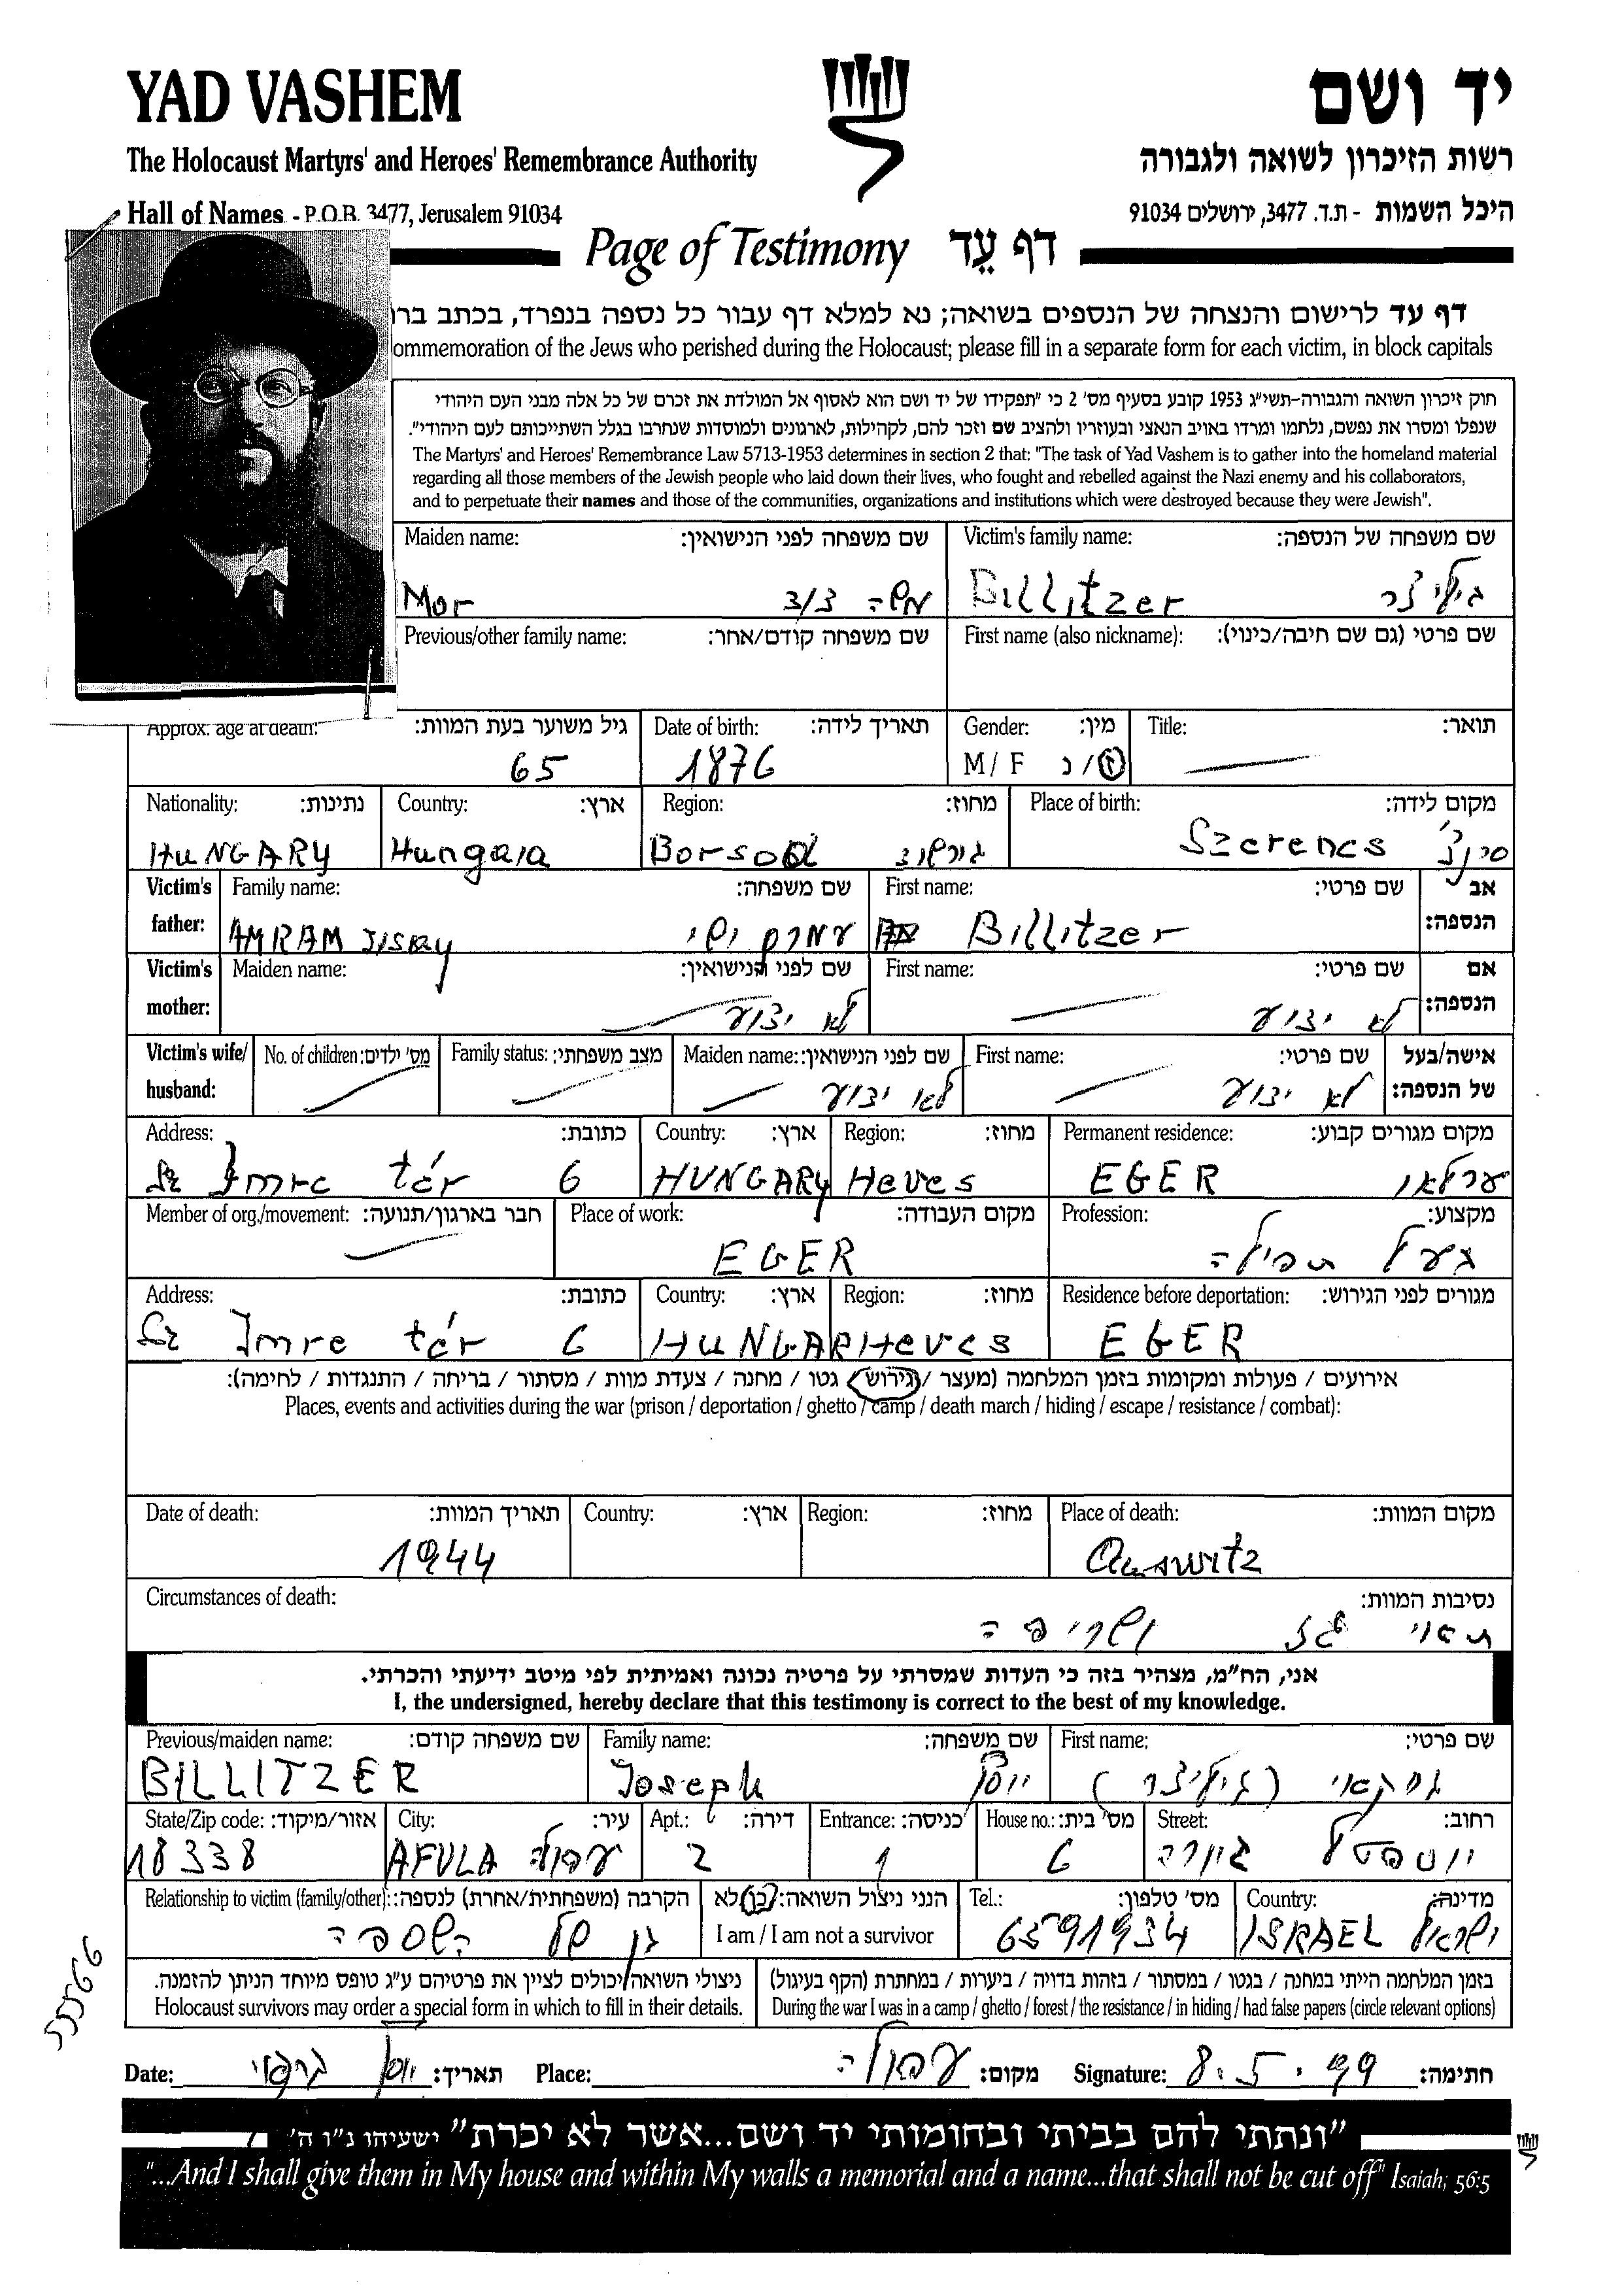 YAD VASHEM
יד ושם
The Holocaust Martyrs' and Heroes' Remembrance Authority
רשות הזיכרון לשואה ולגבורה
Hall of Names - P.O.B. 3477, Jerusalem 91034
היכל השמות - ת.ד. 3477, ירושלים 91034
Page of Testimony דף עֵד
דף עד לרישום והנצחה של הנספים בשואה; נא למלא דף עבור כל נספה בנפרד, בכתב
ommemoration of the Jews who perished during the Holocaust; please fill in a separate form for each victim, in block capitals
חוק זיכרון השואה והגבורה-תשי"ג 1953 קובע בסעיף מס' 2 כי "תפקידו של יד ושם הוא לאסוף אל המולדת את זכרם של כל אלה מבני העם היהודי
שנפלו ומסרו את נפשם, נלחמו ומרדו באויב הנאצי ובעוזריו ולהציב שם וזכר להם, לקהילות, לארגונים ולמוסדות שנחרבו בגלל השתייכותם לעם היהודי".
The Martyrs' and Heroes' Remembrance Law 5713-1953 determines in section 2 that: "The task of Yad Vashem is to gather into the homeland material
regarding all those members of the Jewish people who laid down their lives, who fought and rebelled against the Nazi enemy and his collaborators,
and to perpetuate their names and those of the communities, organizations and institutions which were destroyed because they were Jewish".
Maiden name: שם משפחה לפני הנישואין: Victim's family name: שם משפחה של הנספה:
Mor משה Billitzer ביליצר
Previous/other family name: שם משפחה קודם/אחר: First name (also nickname): שם פרטי (גם שם חיבה/כינוי):
Approx. age at death: גיל משוער בעת המוות: Date of birth: תאריך לידה: Gender: מין: Title: תואר:
65 1876 M / F ז/נ
Nationality: נתינות: Country: ארץ: Region: מחוז: Place of birth: מקום לידה:
HUNGARY Hungaia Borsod בורשוד Szerencs סרנץ'
Victim's father: Family name: שם משפחה: First name: שם פרטי: אב הנספה:
AMRAM Jisay עמרם ישי Billitzer
Victim's mother: Maiden name: שם לפני הנישואין: First name: שם פרטי: אם הנספה:
לא ידוע לא ידוע
Victim's wife/ husband: No. of children: מס' ילדים: Family status: מצב משפחתי: Maiden name: שם לפני הנישואין: First name: שם פרטי: אישה/בעל של הנספה:
לא ידוע לא ידוע
Address: כתובת: Country: ארץ: Region: מחוז: Permanent residence: מקום מגורים קבוע:
Sz Imre tér 6 HUNGARY Heves EGER ערלאו
Member of org./movement: חבר בארגון/תנועה: Place of work: מקום העבודה: Profession: מקצוע:
EGER בעל תפילה
Address: כתובת: Country: ארץ: Region: מחוז: Residence before deportation: מגורים לפני הגירוש:
Sz Imre tér 6 HUNGAR Heves EGER
אירועים / פעולות ומקומות בזמן המלחמה (מעצר / גירוש / גטו / מחנה / צעדת מוות / מסתור / בריחה / התנגדות / לחימה):
Places, events and activities during the war (prison / deportation / ghetto / camp / death march / hiding / escape / resistance / combat):
Date of death: תאריך המוות: Country: ארץ: Region: מחוז: Place of death: מקום המוות:
1944 Auswitz
Circumstances of death: נסיבות המוות:
תאי גז ושריפה
אני, הח"מ, מצהיר בזה כי העדות שמסרתי על פרטיה נכונה ואמיתית לפי מיטב ידיעתי והכרתי.
I, the undersigned, hereby declare that this testimony is correct to the best of my knowledge.
Previous/maiden name: שם משפחה קודם: Family name: שם משפחה: First name: שם פרטי:
BILLITZER Joseph יוסף (ביליצר)
State/Zip code: אזור/מיקוד: City: עיר: Apt.: דירה: Entrance: כניסה: House no.: מס' בית: Street: רחוב:
18338 AFULA עפולה 2 1 6 יוספטל גיורה
Relationship to victim (family/other): הקרבה (משפחתית/אחרת) לנספה: הנני ניצול השואה: כן/לא Tel.: מס' טלפון: Country: מדינה:
בן של הנספה I am / I am not a survivor 6591934 ISRAEL ישראל
ניצולי השואה יכולים לציין את פרטיהם ע"ג טופס מיוחד הניתן להזמנה. בזמן המלחמה הייתי במחנה / בגטו / במסתור / בזהות בדויה / ביערות / במחתרת (הקף בעיגול)
Holocaust survivors may order a special form in which to fill in their details. During the war I was in a camp / ghetto / forest / the resistance / in hiding / had false papers (circle relevant options)
Date: יוסף תאריך: Place: עפולה מקום: Signature: 8.5.99 חתימה:
"ונתתי להם בביתי ובחומותי יד ושם...אשר לא יכרת" ישעיהו נ"ו ה'
"...And I shall give them in My house and within My walls a memorial and a name...that shall not be cut off" Isaiah, 56:5